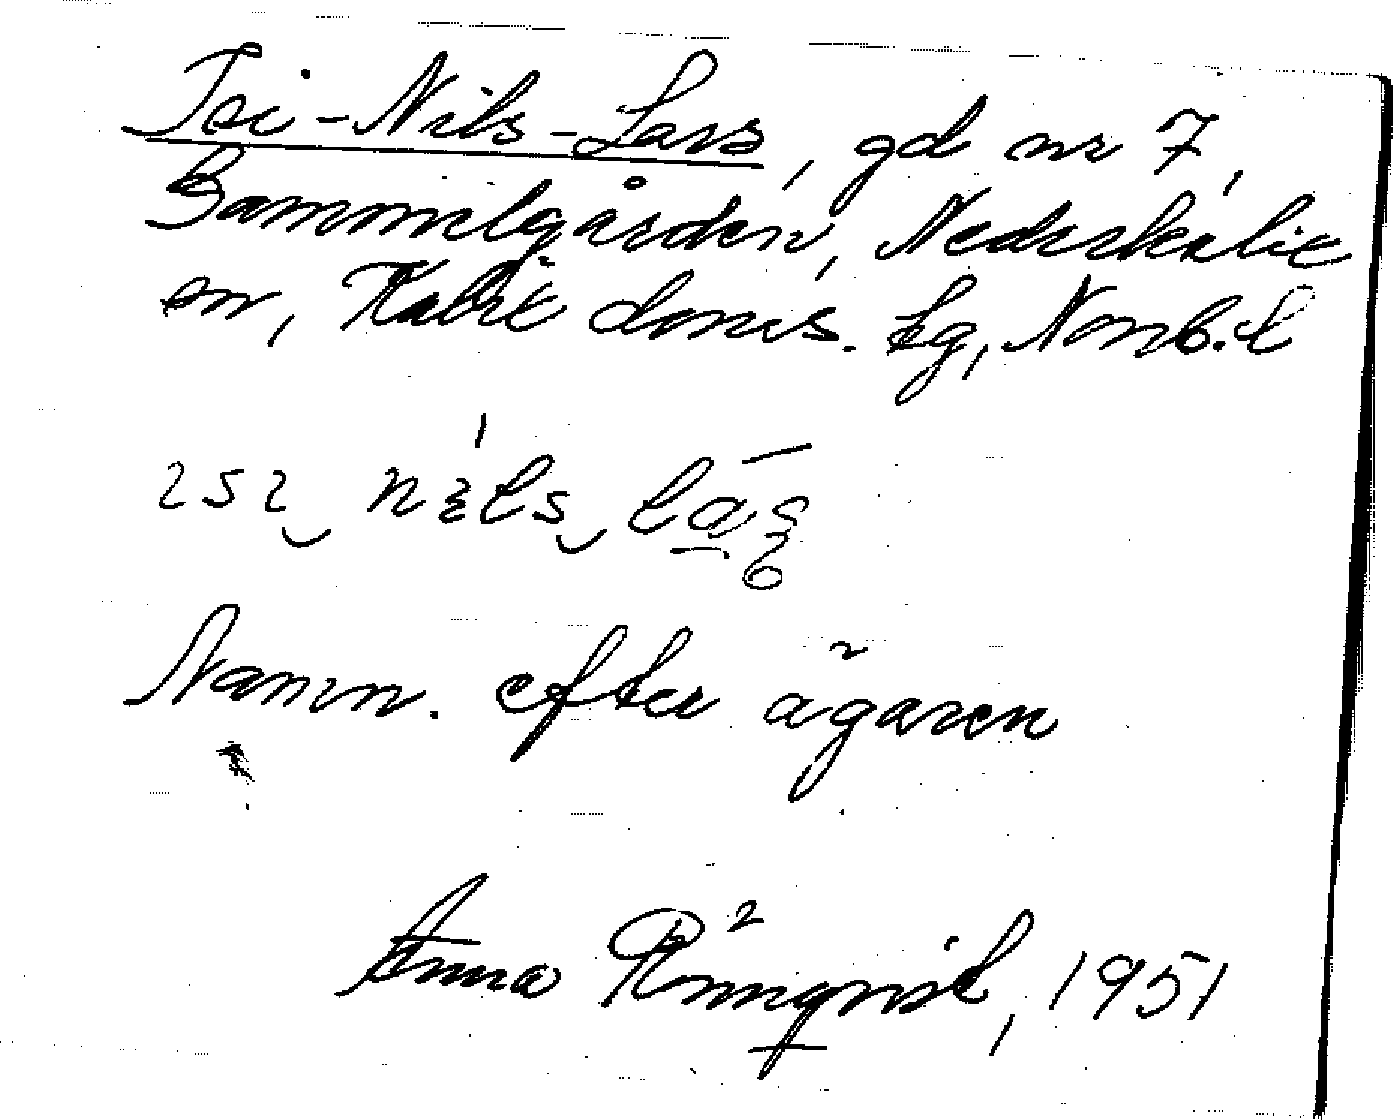 Isi-Nils-Lars, gd nr 7,
Gammelgården, Nederkalix
en, Kalix doms. tg, Norrb. l
Namn. efter ägaren
Anna Rönnqvist, 1951